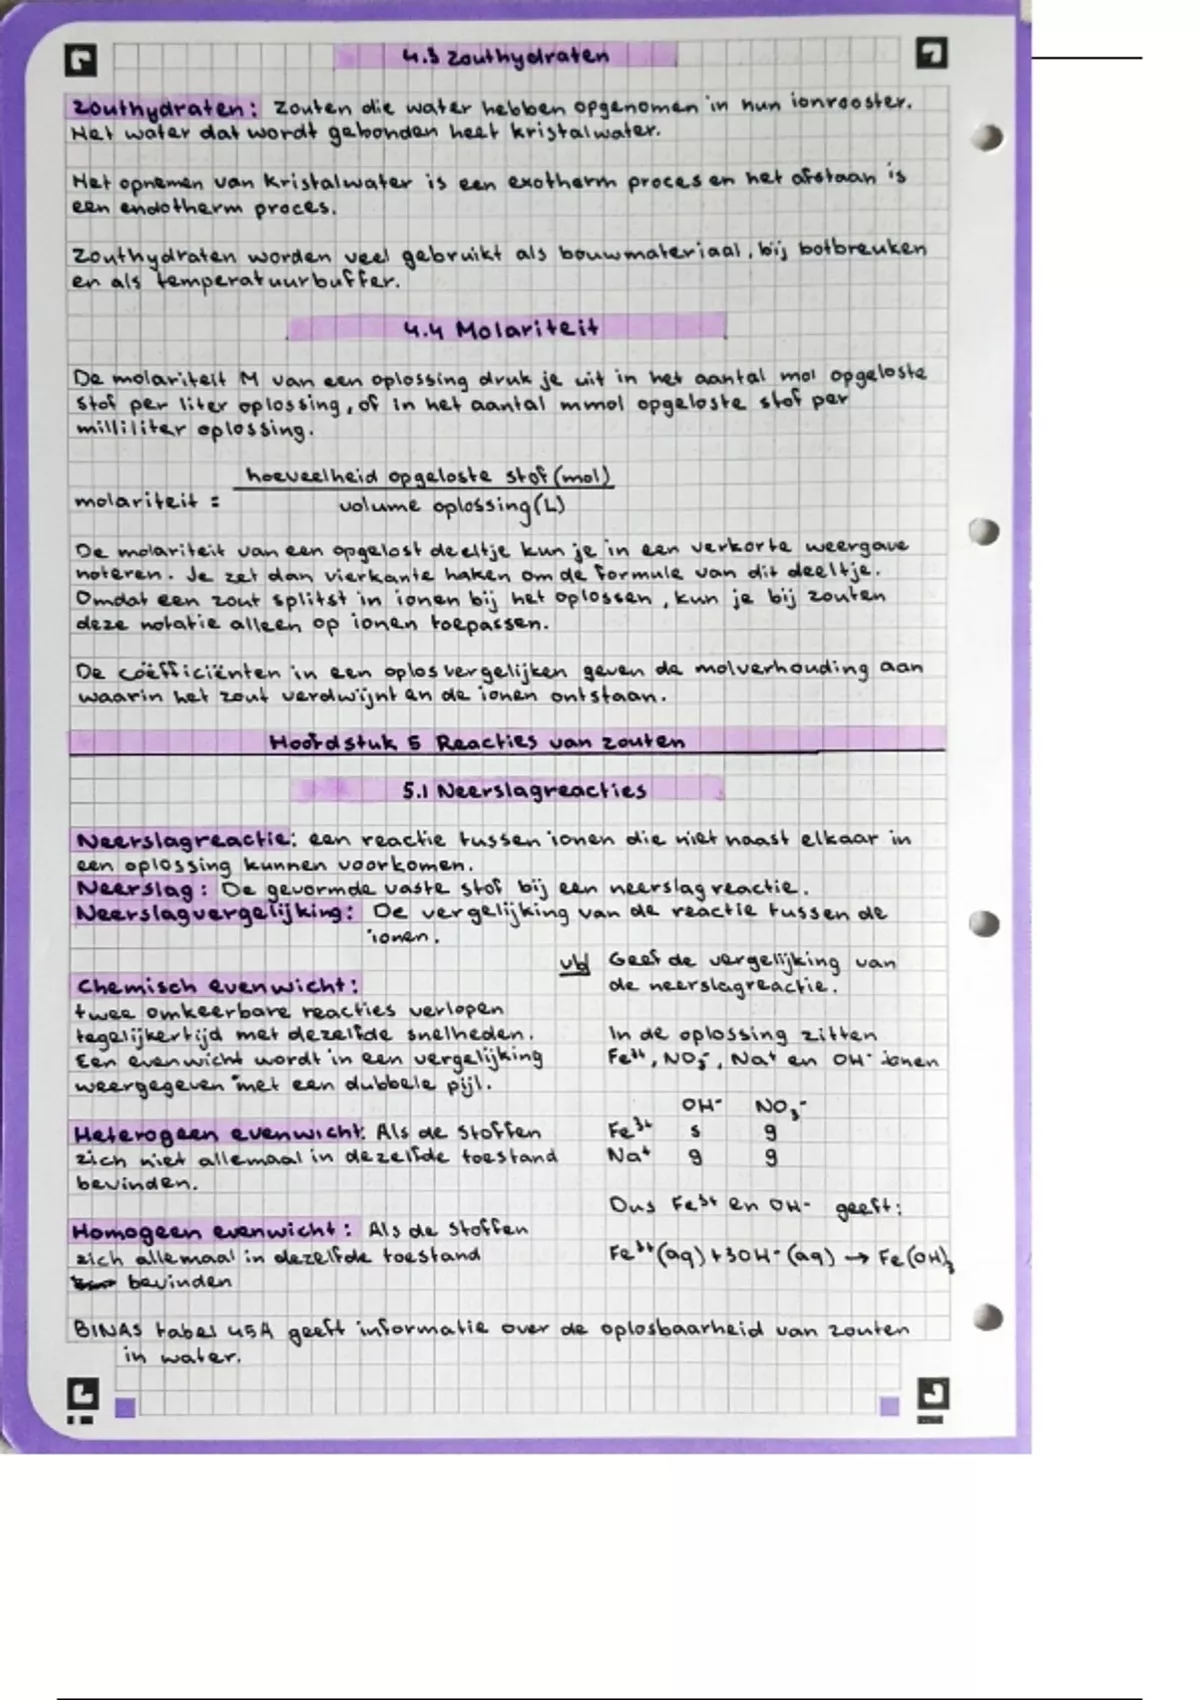 4.3 Zouthydraten
Zouthydraten: Zouten die water hebben opgenomen in hun ionrooster.
Het water dat wordt gebonden heet kristalwater.
Het opnemen van kristalwater is een exotherm proces en het afstaan is
een endotherm proces.
Zouthydraten worden veel gebruikt als bouwmateriaal, bij botbreuken
en als temperatuurbuffer.
4.4 Molariteit
De molariteit M van een oplossing druk je uit in het aantal mol opgeloste
stof per liter oplossing, of in het aantal mmol opgeloste stof per
milliliter oplossing.
hoeveelheid opgeloste stof (mol)
molariteit =
volume oplossing (L)
De molariteit van een opgelost deeltje kun je in een verkorte weergave
noteren. Je zet dan vierkante haken om de formule van dit deeltje.
Omdat een zout splitst in ionen bij het oplossen, kun je bij zouten
deze notatie alleen op ionen toepassen.
De coëfficiënten in een oplosvergelijken geven de molverhouding aan
waarin het zout verdwijnt en de ionen ontstaan.
Hoofdstuk 5 Reacties van zouten
5.1 Neerslagreacties
Neerslagreactie: een reactie tussen ionen die niet naast elkaar in
een oplossing kunnen voorkomen.
Neerslag: De gevormde vaste stof bij een neerslagreactie.
Neerslagvergelijking: De vergelijking van de reactie tussen de
ionen.
Chemisch evenwicht:
twee omkeerbare reacties verlopen
tegelijkertijd met dezelfde snelheden.
Een evenwicht wordt in een vergelijking
weergegeven met een dubbele pijl.
Heterogeen evenwicht: Als de stoffen
zich niet allemaal in dezelfde toestand
bevinden.
Homogeen evenwicht: Als de stoffen
zich allemaal in dezelfde toestand
bevinden
vb Geef de vergelijking van
de neerslagreactie.
In de oplossing zitten
Fe³⁺, NO₃⁻, Na⁺ en OH⁻ ionen
OH⁻ NO₃⁻
Fe³⁺ s g
Na⁺ g g
Dus Fe³⁺ en OH⁻ geeft:
Fe³⁺(aq) + 3OH⁻(aq) → Fe(OH)₃
BINAS tabel 45A geeft informatie over de oplosbaarheid van zouten
in water.